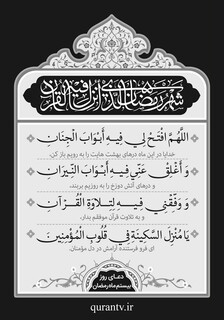 شهر رمضان الذی انزل فیه القرآن
اللّهُمَّ افْتَحْ لي فيهِ أبْوابَ الْجِنانِ
خدایا در این ماه درهای بهشت هایت را به رویم باز کن،
وَ أَغْلِقْ عَنّي فيهِ أبْوابَ النّيرانِ
و درهای آتش دوزخ را به رویم ببند،
وَ وَفِّقْني فيهِ لِتِلاوَةِ الْقُرْآنِ
و به تلاوت قرآن موفقم بدار،
يا مُنْزِلَ السَّكينَةِ في قُلُوبِ الْمُؤْمِنينَ
ای فرو فرستنده آرامش در دل مؤمنان.
دعای روز
بیستم ماه رمضان
qurantv.ir